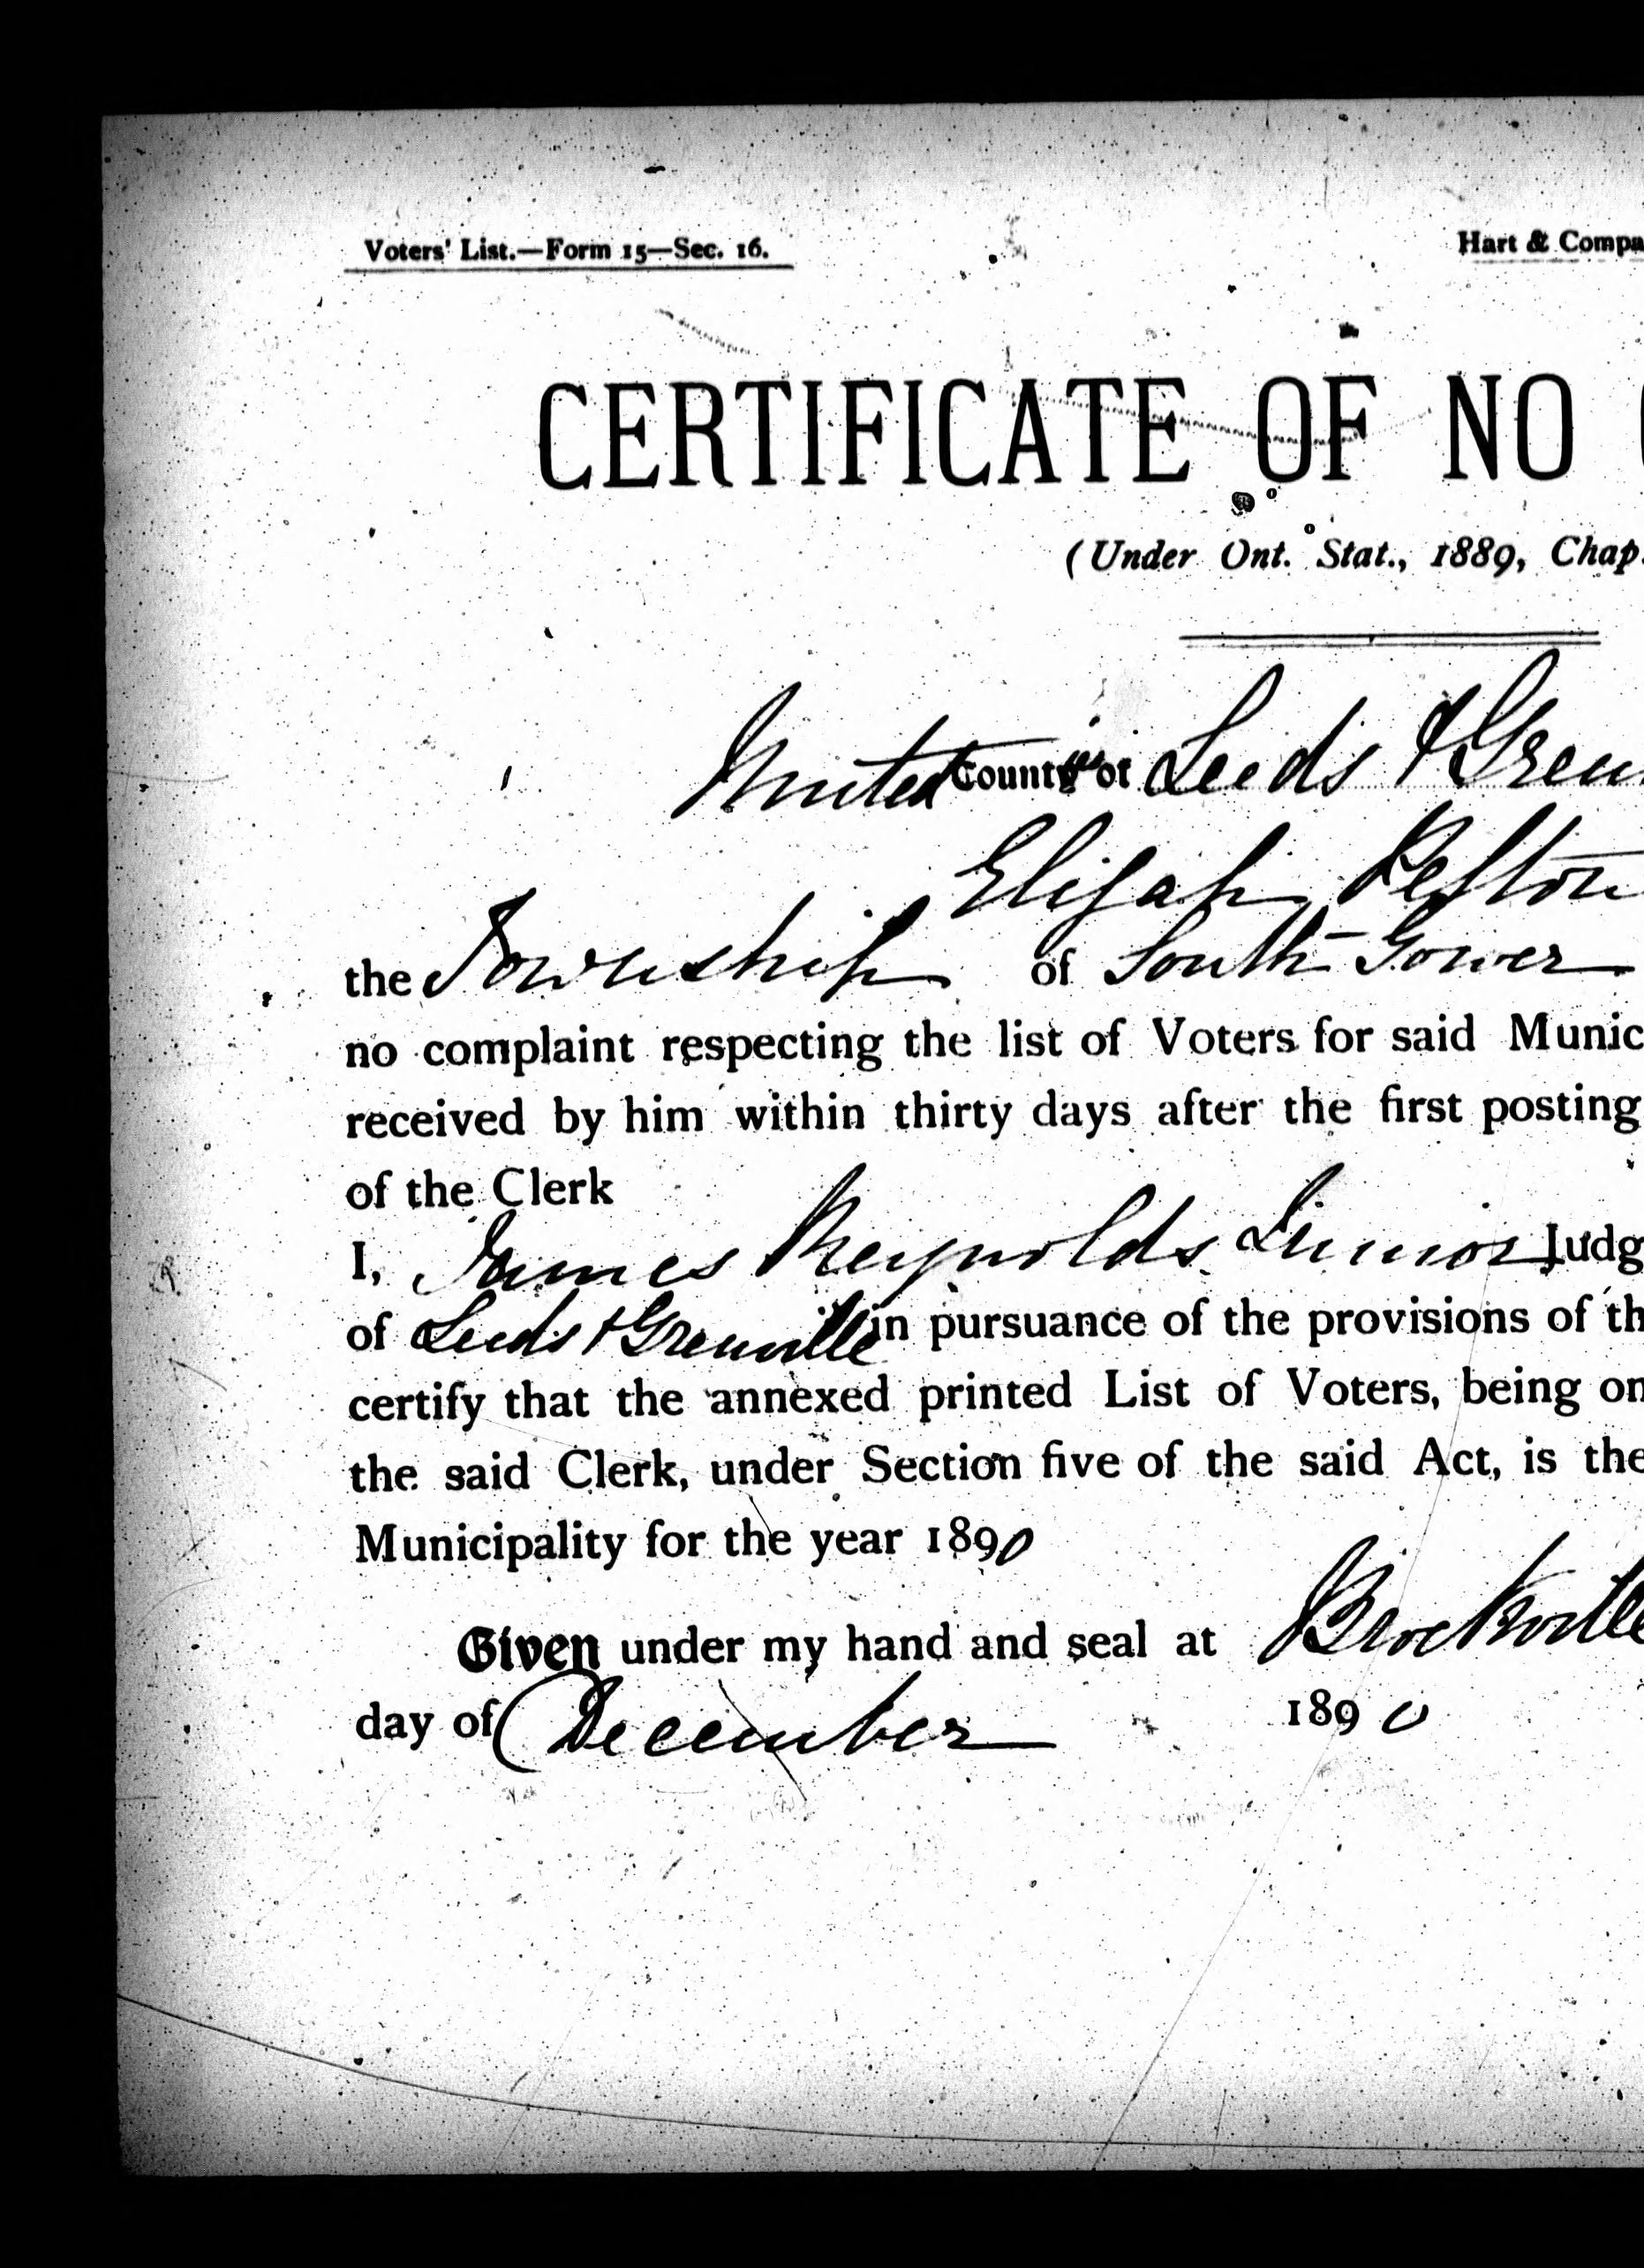 Voters' List.—Form 15—Sec. 16.
Hart & Compa
CERTIFICATE OF NO
(Under Ont. Stat., 1889, Chap.
United Counties of Leeds & Gren
Elijah Pelton
the Township of South Gower
no complaint respecting the list of Voters for said Munic
received by him within thirty days after the first posting
of the Clerk
I, James Reynolds Junior Judg
of Leeds & Grenville in pursuance of the provisions of th
certify that the annexed printed List of Voters, being on
the said Clerk, under Section five of the said Act, is the
Municipality for the year 1890
Given under my hand and seal at Brockville
day of December 1890